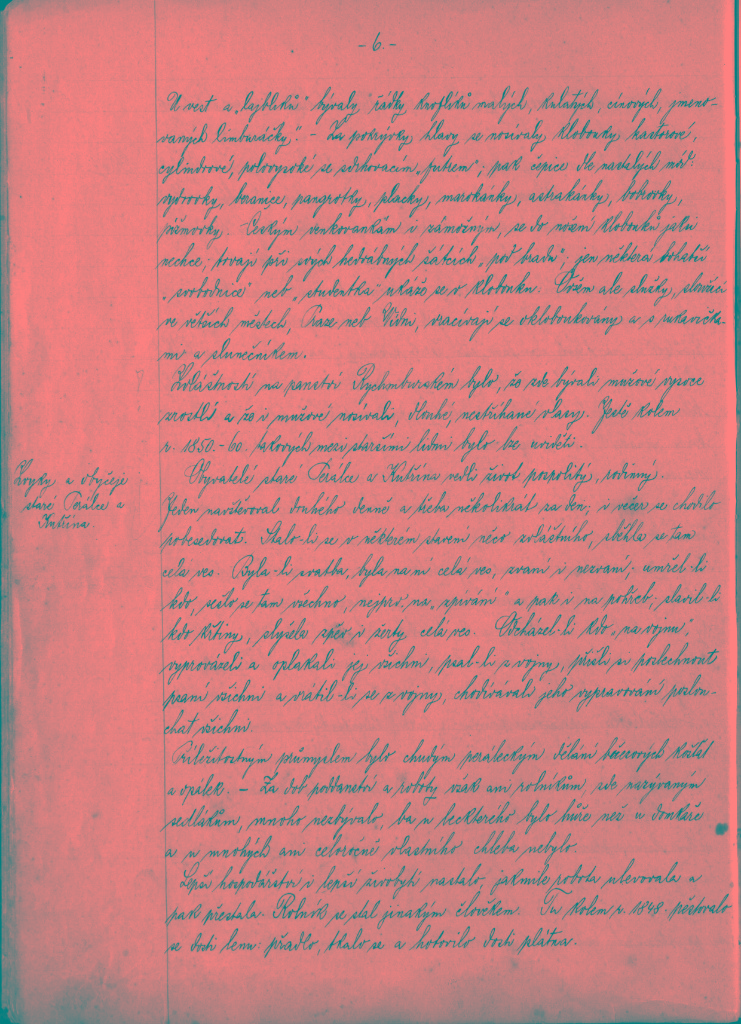 - 6. -
U vest a „lajblíků" bývaly řádky knoflíků malých, kulatých, cínových, jmeno-
vaných „limburáčky". - Za pokrývky hlavy se nosívaly klobouky kastorové,
cylindrové, polovysoké se sdrhovacím „futrem"; pak čepice dle navstalých mód:
vydrovky, beranice, pangrotky, placky, marokánky, astrakánky, bobrovky,
pižmovky. Českým venkovankám i zámožným, se do nošení klobouků jaksi
nechce; tovají při svých hedvábných šátcích „pod bradu"; jen některá bohatší
„svobodnice" neb „studentka" ukáže se v klobouku. Ovšem ale služky, sloužící
ve větších městech, Praze neb Vídni, vracívají se okloboukovány a s rukavička-
mi a slunečníkem.
Zvláštností na panství Rychmburském bylo, že zde bývali mužové vysoce
zrostlí a že i mužové nosívali, dlouhé, nestříhané vlasy. Ještě kolem
r. 1850.-60. takových mezi staršími lidmi bylo lze viděti.
Zvyky a obyčeje
staré Perálce a
Kutřína.
Obyvatelé staré Perálce a Kutřína vedli život pospolitý, rodinný.
Jeden navštěvoval druhého denně a třeba několikrát za den; i večer se chodilo
pobesedovat. Stalo-li se v některém stavení něco zvláštního, sběhla se tam
celá ves. Byla-li svatba, byla na ní celá ves, zvaní i nezvaní; umřel-li
kdo, sešlo se tam všechno, nejprv „na zpívání" a pak i na pohřeb; slavil-li
kdo křtiny, slyšela zpěv i žerty celá ves. Odcházel-li kdo „na vojnu",
vyprovázeli a oplakali jej všichni, psal-li z vojny, přišli si poslechnout
psaní všichni a vrátil-li se z vojny, chodívávali jeho vypravování poslou-
chat všichni.
Příležitostným průmyslem bylo chudým peráleckým dělání březových košťat
a opálek. - Za dob poddanství a roboty však ani rolníkům, zde nazývaným
sedlákům, mnoho nezbývalo, ba u leckterého bylo hůře než u domkáře
a u mnohých ani celoročně vlastního chleba nebylo.
Lepší hospodářství i lepší živobytí nastalo, jakmile robota ulevovala a
pak přestala. Rolník se stal jinakým člověkem. Tu kolem r. 1848. pěstovalo
se dosti lenu: přadlo, tkalo se a hotovilo dosti plátna.